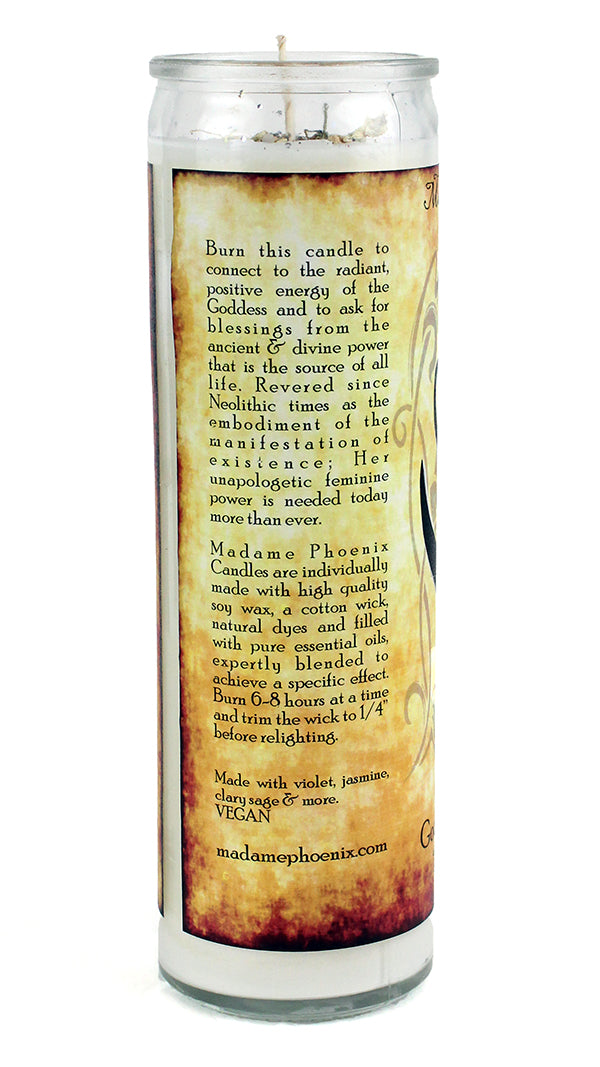 Burn this candle to
connect to the radiant,
positive energy of the
Goddess and to ask for
blessings from the
ancient & divine power
that is the source of all
life. Revered since
Neolithic times as the
embodiment of the
manifestation of
existence; Her
unapologetic feminine
power is needed today
more than ever.
Madame Phoenix
Candles are individually
made with high quality
soy wax, a cotton wick,
natural dyes and filled
with pure essential oils,
expertly blended to
achieve a specific effect.
Burn 6-8 hours at a time
and trim the wick to 1/4"
before relighting.
Made with violet, jasmine,
clary sage & more.
VEGAN
madamephoenix.com